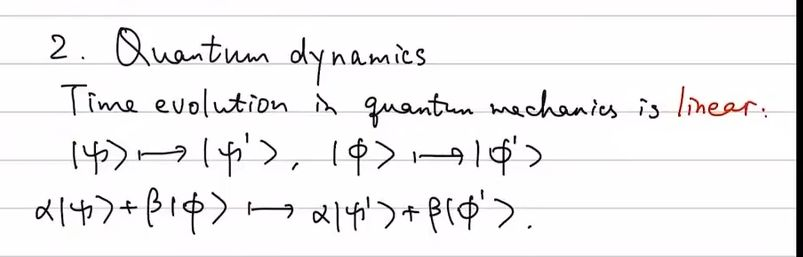 2. Quantum dynamics
Time evolution in quantum mechanics is linear.
|ψ⟩ ↦ |ψ'⟩, |ϕ⟩ ↦ |ϕ'⟩
α|ψ⟩+β|ϕ⟩ ↦ α|ψ'⟩+β|ϕ'⟩.